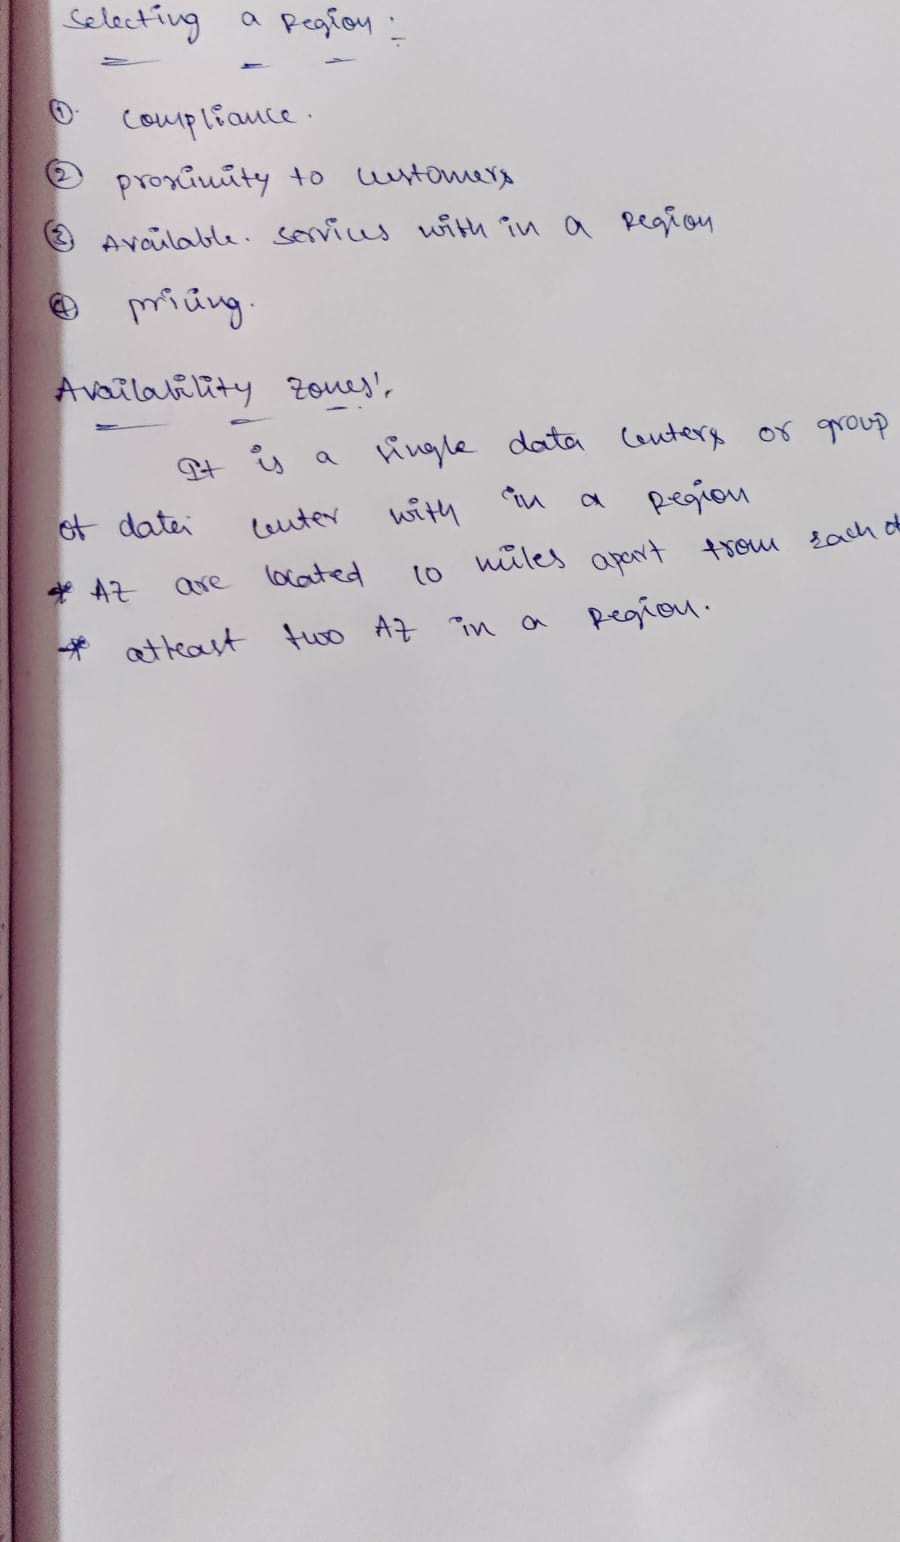 Selecting a Region :
① Compliance.
② proximity to customers
③ Available. services with in a Region
④ pricing.
Availability Zones:
It is a single data centers or group
of data center with in a Region
* AZ are located 10 miles apart from each o
* atleast two AZ in a Region.